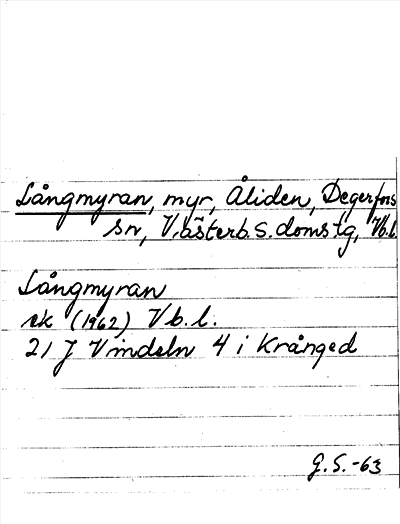 Långmyran, myr, Åliden, Degerfors
sn, Västerb. s. domstg, Vb.l.
Långmyran
ek (1962) Vb.l.
21 J Vindeln 4 i Krånged
G.S.-63